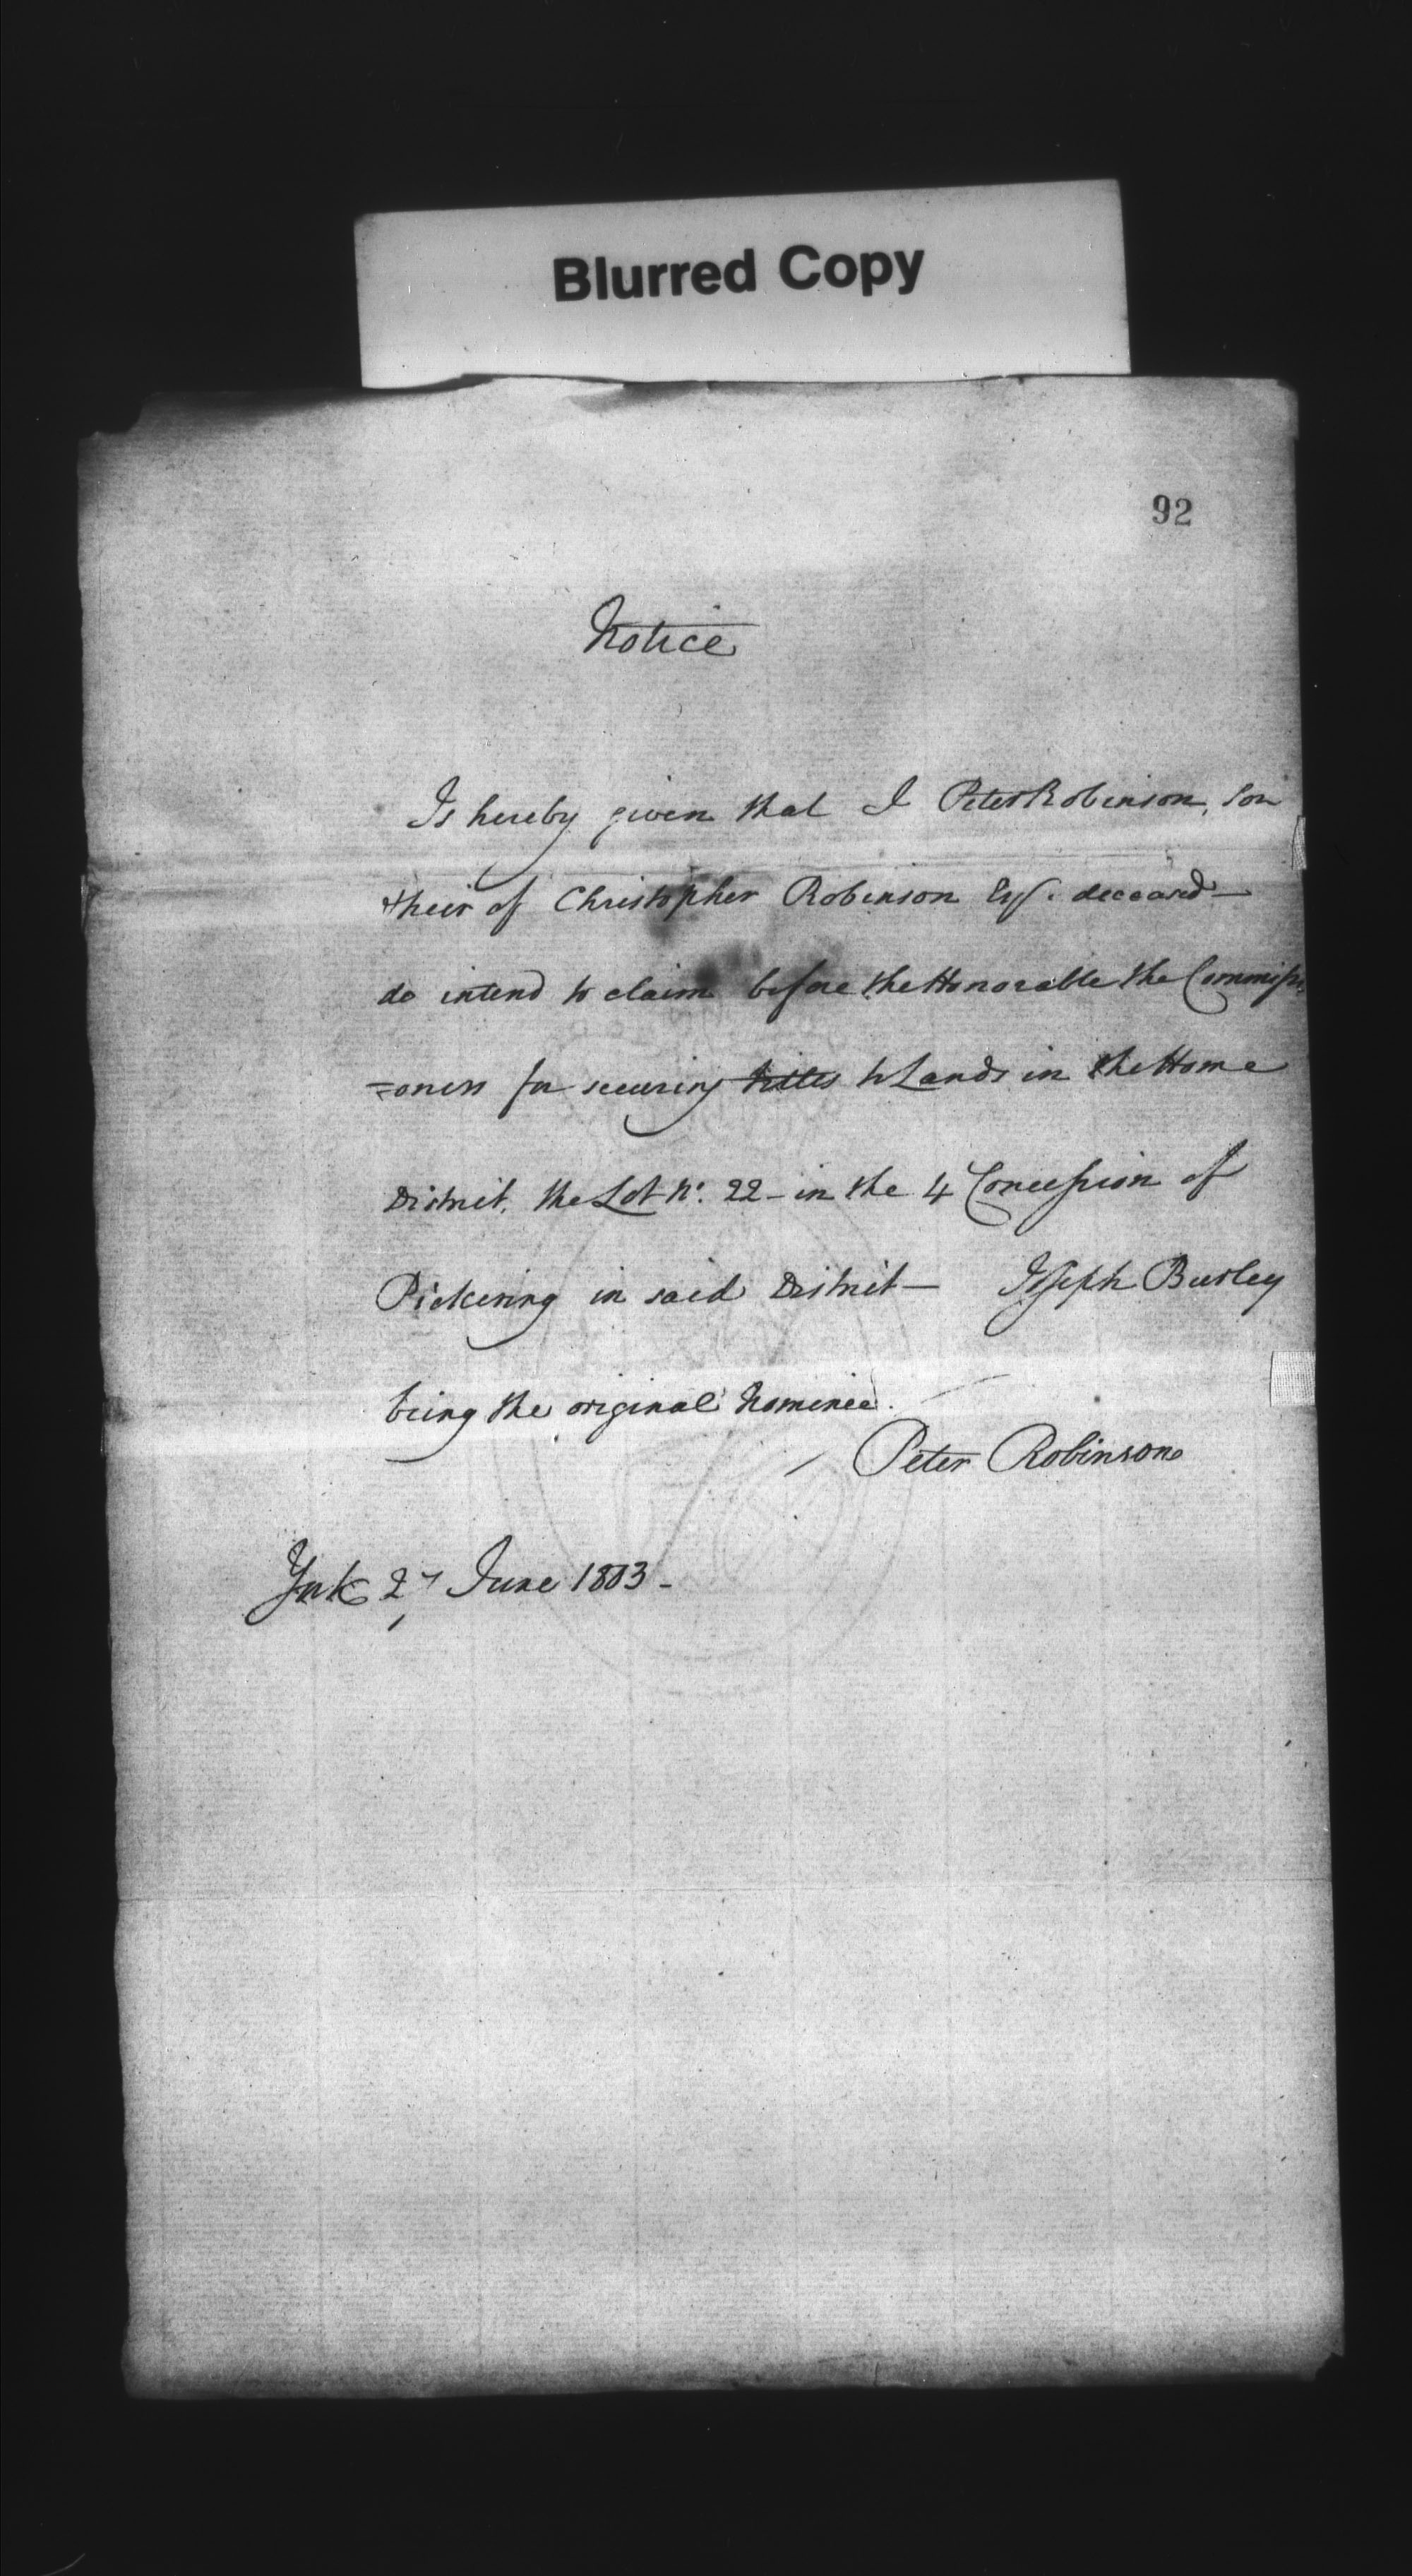 Blurred Copy
92
Notice
Is hereby given that I Peter Robinson, son
& heir of Christopher Robinson Esq. deceased —
do intend to claim before the Honorable the Commissi
=oners for securing titles to Lands in the Home
District, the Lot No. 22 — in the 4 Concession of
Pickering in said District — Joseph Burley
being the original Nominee.
Peter Robinson
York 27 June 1803 -